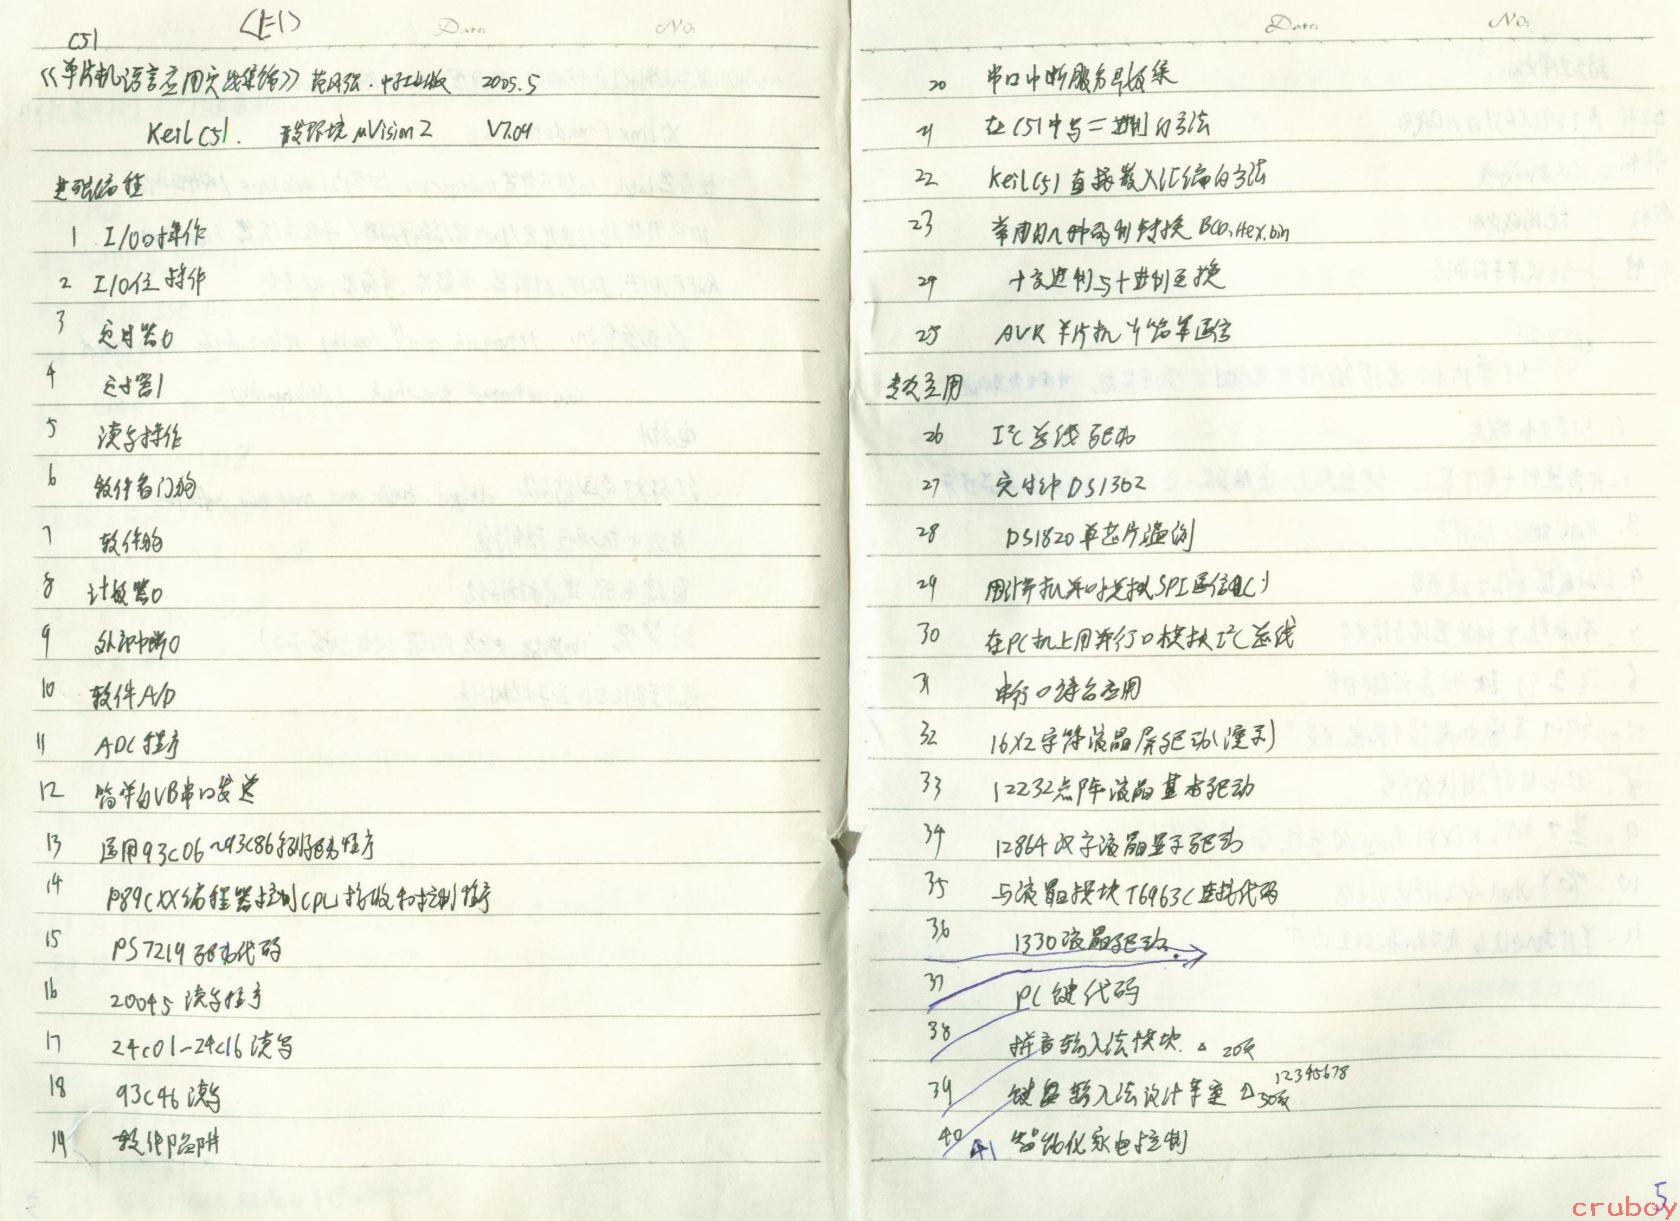 〈上1〉
Date: No:
C51
《单片机语言应用实战集锦》范风强.电子工业出版 2005.5
Keil C51. 开发环境 μVision2 V7.04
基础编程
1 I/O口操作
2 I/O位操作
3 定时器0
4 定时器1
5 读写操作
6 软件看门狗
7 软件狗
8 计数器0
9 外部中断0
10 软件A/D
11 ADC程序
12 简单的VB串口发送
13 适用93C06~93C86系列驱动程序
14 P89CXX编程器控制CPU接收和控制程序
15 PS7219驱动代码
16 20045读写程序
17 24C01~24C16读写
18 93C46读写
19 软件陷阱
Date: No:
20 串口中断服务函数集
21 在C51中写二进制的方法
22 Keil C51直接嵌入汇编的方法
23 常用的几种码制转换BCD,Hex,bin
24 十六进制与十进制互换
25 AVR单片机 简单通信
专项应用
26 I²C总线驱动
27 实时钟DS1302
28 DS1820单芯片温测
29 用计算机并口模拟SPI通信(C)
30 在PC机上用并行口模拟I²C总线
31 串行口综合应用
32 16X2字符液晶屏驱动(演示)
33 12232点阵液晶基本驱动
34 12864汉字液晶显示驱动
35 与液晶模块T6963C连接代码
36 1330液晶驱动
37 PC键代码
38 拼音输入法模块. △ 20页
39 键盘输入法设计草案 △50页 12345678
40 41 智能化家电控制
5
cruboy